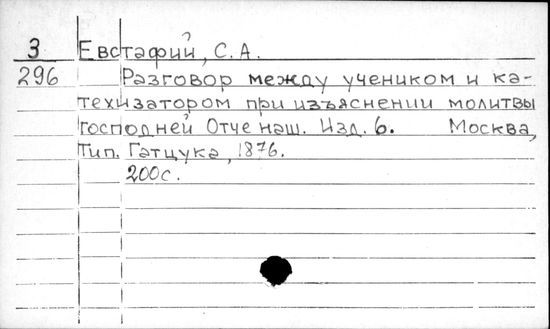 З Евстафий, С. А.
296 Разговор между учеником и ка-
техизатором при изъяснении молитвы
господней Отче наш. Изд. 6. Москва,
Тип. Гатцука, 1876.
200с.